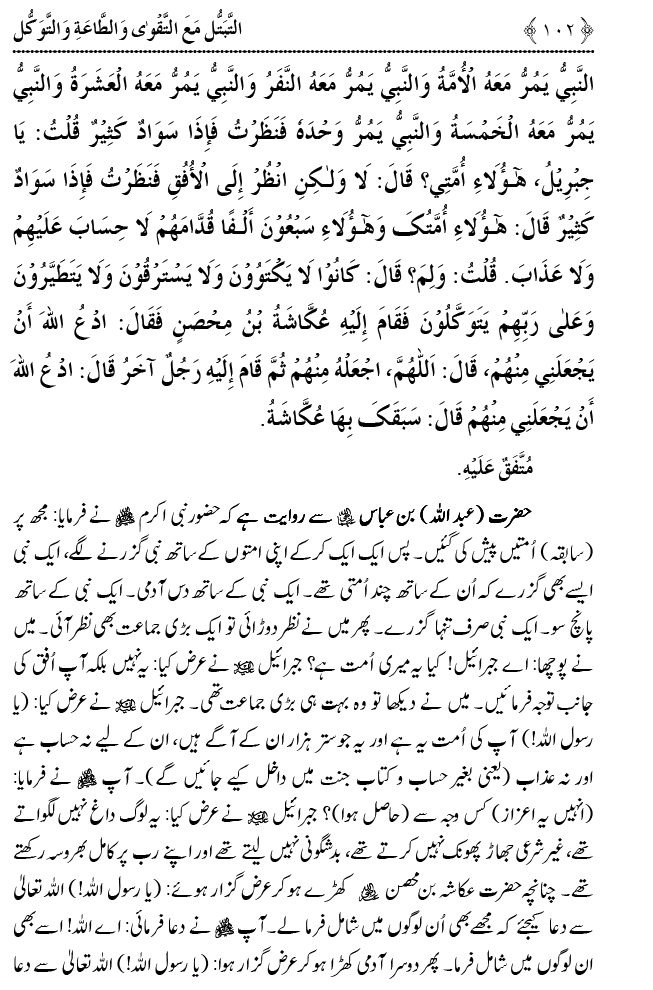 ﴿۱۰۲﴾ التَّبَتُّل مَعَ التَّقْوٰی وَالطَّاعَةِ وَالتَّوَكُّل
النَّبِيُّ يَمُرُّ مَعَهُ الْأُمَّةُ وَالنَّبِيُّ يَمُرُّ مَعَهُ النَّفَرُ وَالنَّبِيُّ يَمُرُّ مَعَهُ الْعَشَرَةُ وَالنَّبِيُّ
يَمُرُّ مَعَهُ الْخَمْسَةُ وَالنَّبِيُّ يَمُرُّ وَحْدَهُ فَنَظَرْتُ فَإِذَا سَوَادٌ كَثِيْرٌ قُلْتُ: يَا
جِبْرِيْلُ، هٰؤُلَاءِ أُمَّتِي؟ قَالَ: لَا وَلٰكِنِ انْظُرْ إِلَى الْأُفُقِ فَنَظَرْتُ فَإِذَا سَوَادٌ
كَثِيْرٌ قَالَ: هٰؤُلَاءِ أُمَّتُکَ وَهٰؤُلَاءِ سَبْعُوْنَ أَلْفًا قُدَّامَهُمْ لَا حِسَابَ عَلَيْهِمْ
وَلَا عَذَابَ. قُلْتُ: وَلِمَ؟ قَالَ: كَانُوْا لَا يَكْتَوُوْنَ وَلَا يَسْتَرْقُوْنَ وَلَا يَتَطَيَّرُوْنَ
وَعَلٰى رَبِّهِمْ يَتَوَكَّلُوْنَ فَقَامَ إِلَيْهِ عُكَّاشَةُ بْنُ مِحْصَنٍ فَقَالَ: ادْعُ اللهَ أَنْ
يَجْعَلَنِي مِنْهُمْ، قَالَ: اَللّٰهُمَّ، اجْعَلْهُ مِنْهُمْ ثُمَّ قَامَ إِلَيْهِ رَجُلٌ آخَرُ قَالَ: ادْعُ اللهَ
أَنْ يَجْعَلَنِي مِنْهُمْ قَالَ: سَبَقَکَ بِهَا عُكَّاشَةُ.
مُتَّفَقٌ عَلَيْهِ.
حضرت (عبد اللہ) بن عباس ؓ سے روایت ہے کہ حضور نبی اکرم ﷺ نے فرمایا: مجھ پر
(سابقہ) اُمتیں پیش کی گئیں۔ پس ایک ایک کرکے اپنی امتوں کے ساتھ نبی گزرنے لگے، ایک نبی
ایسے بھی گزرے کہ اُن کے ساتھ چند اُمتی تھے۔ ایک نبی کے ساتھ دس آدمی۔ ایک نبی کے ساتھ
پانچ سو۔ ایک نبی صرف تنہا گزرے۔ پھر میں نے نظر دوڑائی تو ایک بڑی جماعت بھی نظر آئی۔ میں
نے پوچھا: اے جبرائیل! کیا یہ میری اُمت ہے؟ جبرائیل ؑ نے عرض کیا: یہ نہیں بلکہ آپ اُفق کی
جانب توجہ فرمائیں۔ میں نے دیکھا تو وہ بہت ہی بڑی جماعت تھی۔ جبرائیل ؑ نے عرض کیا: (یا
رسول اللہ!) آپ کی اُمت یہ ہے اور یہ جو ستر ہزار ان کے آگے ہیں، ان کے لیے نہ حساب ہے
اور نہ عذاب (یعنی بغیر حساب و کتاب جنت میں داخل کیے جائیں گے)۔ آپ ﷺ نے فرمایا:
(انہیں یہ اعزاز) کس وجہ سے (حاصل ہوا)؟ جبرائیل ؑ نے عرض کیا: یہ لوگ داغ نہیں لگواتے
تھے، غیر شرعی جھاڑ پھونک نہیں کرتے تھے، بدشگونی نہیں لیتے تھے اور اپنے رب پر کامل بھروسہ رکھتے
تھے۔ چنانچہ حضرت عکاشہ بن محصن ؓ کھڑے ہو کر عرض گزار ہوئے: (یا رسول اللہ!) اللہ تعالیٰ
سے دعا کیجئے کہ مجھے بھی اُن لوگوں میں شامل فرما لے۔ آپ ﷺ نے دعا فرمائی: اے اللہ! اسے بھی
ان لوگوں میں شامل فرما۔ پھر دوسرا آدمی کھڑا ہو کر عرض گزار ہوا: (یا رسول اللہ!) اللہ تعالیٰ سے دعا